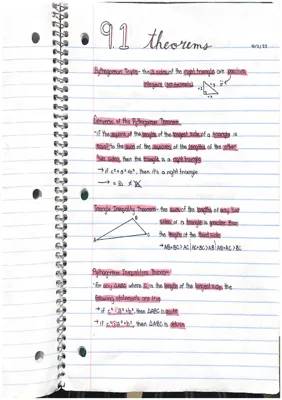 9.1 theorems
Pythagorean Triple - the 3 sides of the right triangle are positive
integers (no decimals)
Converse of the Pythagorean Theorem
*if the square of the length of the longest side of a triangle is
equal to the sum of the squares of the lengths of the other
two sides, then the triangle is a right triangle
→ if c²=a²+b², then it's a right triangle
Triangle Inequality Theorem - the sum of the lengths of any two
sides of a triangle is greater than
the length of the third side
A
B
C
→ AB+BC>AC | AC+BC>AB | AB+AC>BC
Pythagorean Inequalities Theorem
*for any ΔABC where c is the length of the longest side, the
following statements are true
→ if c²<a²+b², then ΔABC is acute
→ if c²>a²+b², then ΔABC is obtuse